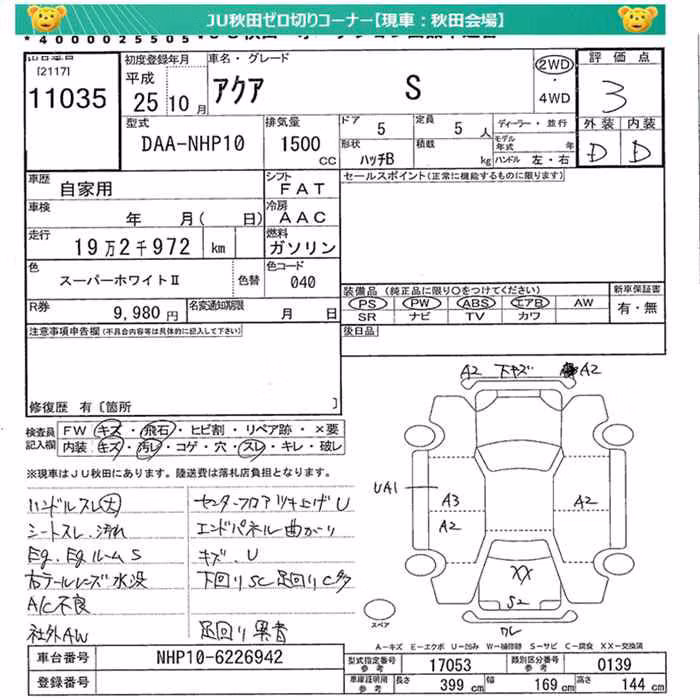 JU秋田ゼロ切りコーナー【現車：秋田会場】
*4000025505
[2117]
11035
初度登録年月
平成
25 10 月
車名・グレード
アクア S
2WD
・
4WD
評価点
3
外装 内装
D D
型式
DAA-NHP10
排気量
1500 CC
ドア
5
定員
5 人
形状
ハッチB
積載
kg
ディーラー・並行
モデル年式 年
ハンドル 左・右
車歴
自家用
シフト
FAT
セールスポイント(正常に機能するものに限ります)
車検
年 月( 日)
冷房
AAC
走行
19万2千972 km
燃料
ガソリン
色
スーパーホワイトⅡ
色替
色コード
040
装備品(純正品に限り○をつけてください)
PS PW ABS エアB AW
SR ナビ TV カワ
新車保証書
有・無
R券
9,980 円
名変通知期限
月 日
後日品
注意事項申告欄(不具合内容等は具体的に記入して下さい)
修復歴 有〔箇所 〕
検査員記入欄
FW キズ・飛石・ヒビ割・リペア跡・×要
内装 キズ・汚レ・コゲ・穴・スレ・キレ・破レ
※現車はJU秋田にあります。陸送費は落札店負担となります。
ハンドルスレ大
シートスレ、汚れ
Eg、EgルームS
右テールレンズ水没
A/C不良
社外AW
センターフロアツキ上げU
エンドパネル曲がり
キズ、U
下回りSC足回りC多
足回り異音
A2 下キズ A2
UA1
A3
A2
A2
XX
S2
ワレ
スペア
A－キズ E－エクボ U－凹み W－補修跡 S－サビ C－腐食 XX－交換済
車台番号
NHP10-6226942
登録番号
型式指定番号 参考
17053
類別区分番号 参考
0139
車庫証明用 参考
長さ 399 cm
幅 169 cm
高さ 144 cm